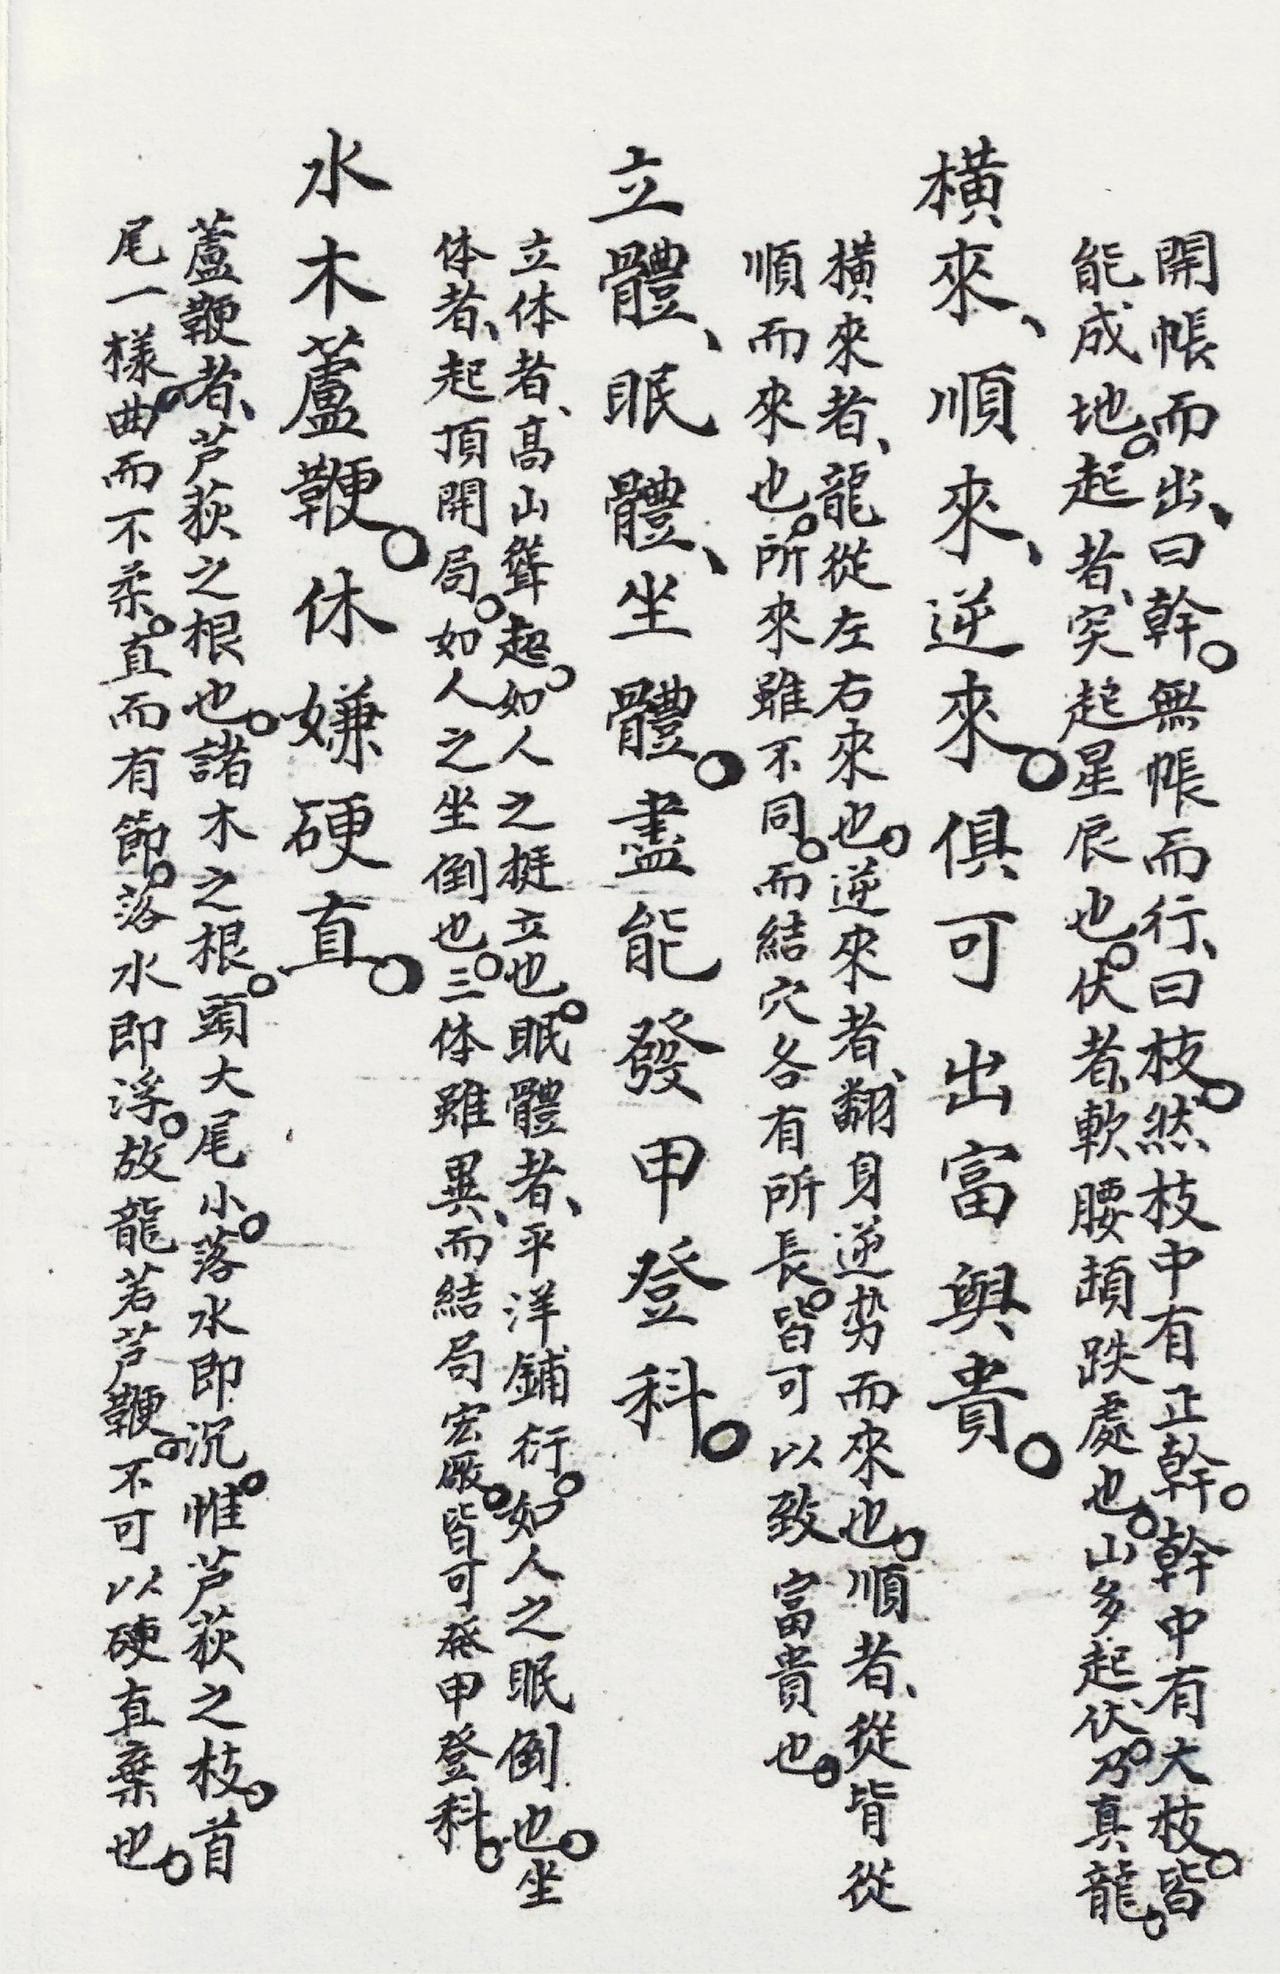 開帳而出、曰幹。無帳而行、曰枝。然枝中有正幹。幹中有大枝。皆
能成地。起者、突起星辰也。伏者、軟腰頓跌處也。山多起伏。乃真龍。
橫來、順來、逆來。俱可出富與貴。
橫來者、龍從左右來也。逆來者、翻身逆势而來也。順者、從背從
順而來也。所來雖不同。而結穴各有所長。皆可以致富貴也。
立體、眠體、坐體。盡能發甲登科。
立体者、高山聳起。如人之挺立也。眠體者、平洋鋪衍。如人之眠倒也。坐
体者、起頂開局。如人之坐倒也。三体雖異、而結局宏厰。皆可發甲登科。
水木蘆鞭。休嫌硬直。
蘆鞭者、芦荻之根也。諸木之根。頭大尾小。落水即沉。惟芦荻之枝。首
尾一樣。曲而不柔。直而有節。落水即浮。故龍若芦鞭。不可以硬直棄也。